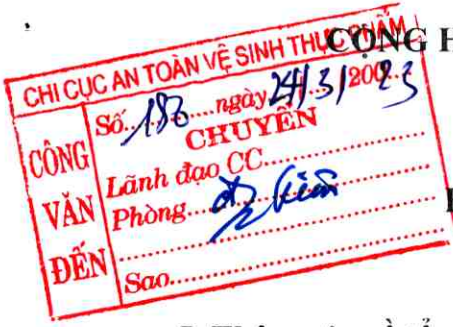 CỘNG H
CHI CỤC AN TOÀN VỆ SINH THỰC PHẨM
CÔNG VĂN ĐẾN
Số 183 ngày 24/3/2023
CHUYỂN
Lãnh đạo CC
Phòng
Sao